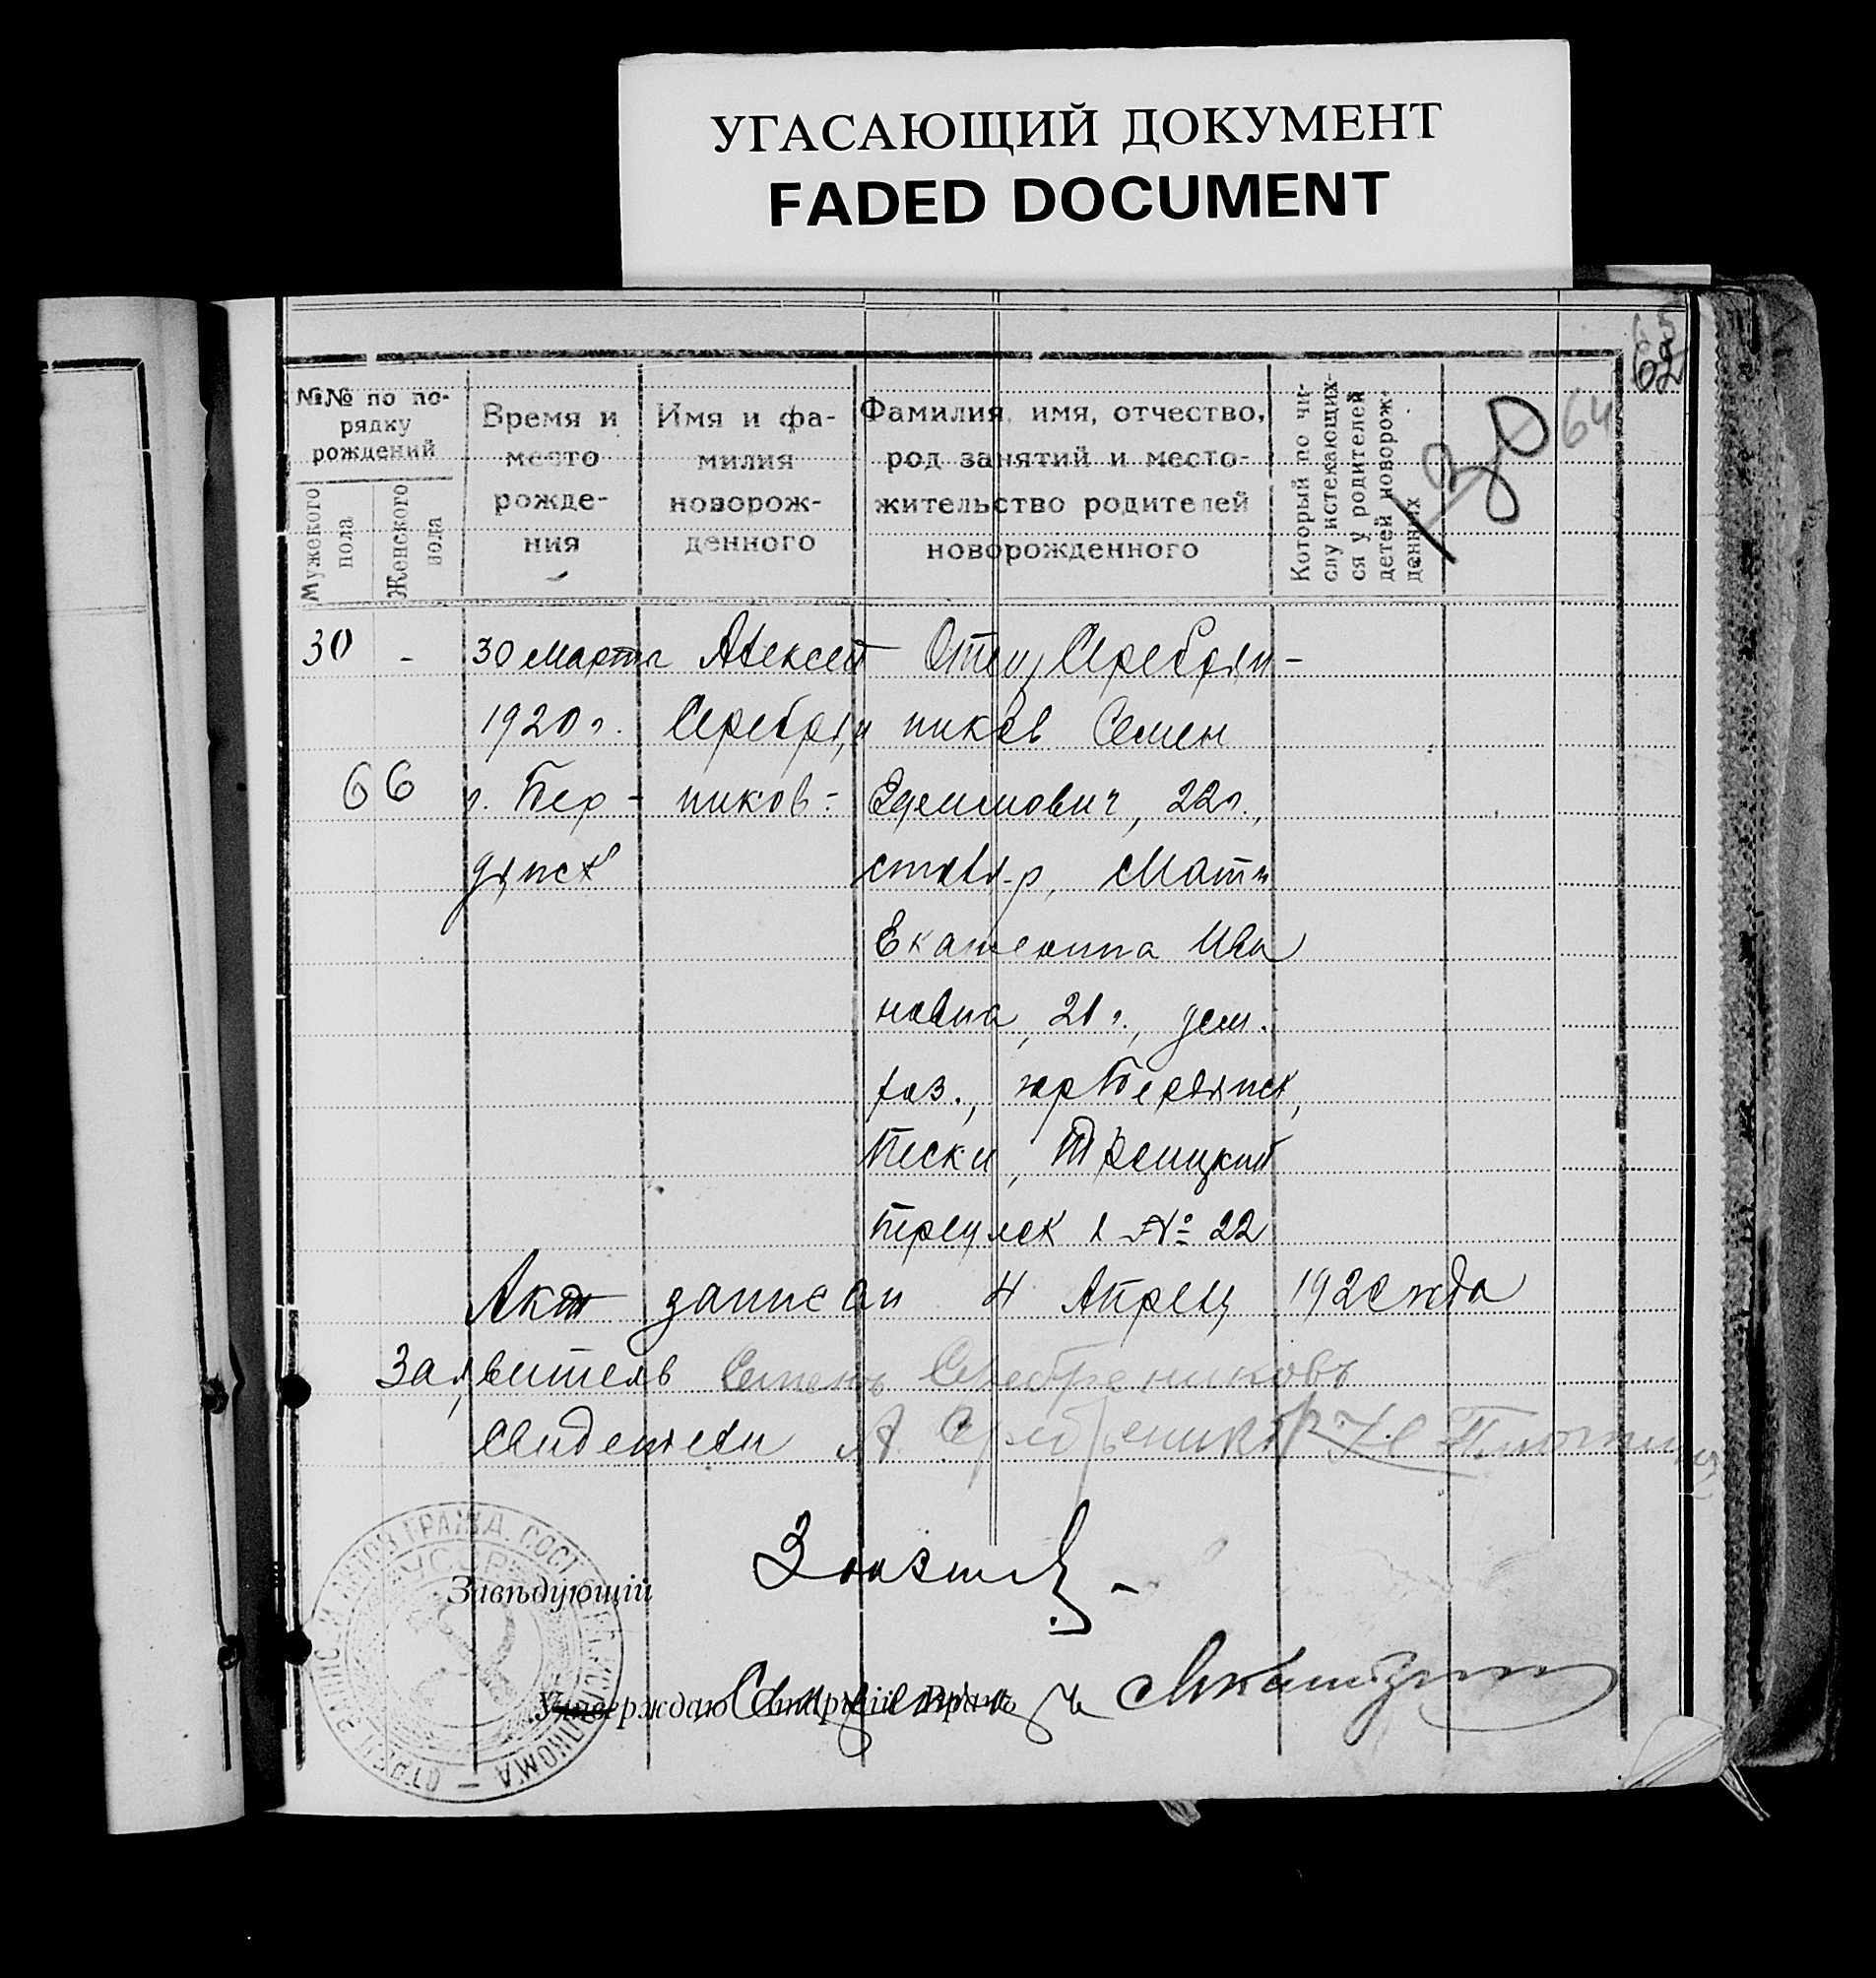 УГАСАЮЩИЙ ДОКУМЕНТ
FADED DOCUMENT
65
62
64
30
№№ по по-
рядку
рождений
Мужеского
пола
Женского
пола
Время и
место
рожде-
ния
Имя и фа-
милия
новорож-
денного
Фамилия, имя, отчество,
род занятий и место-
жительство родителей
новорожденного
Который по чи-
слу истекающих-
ся у родителей
детей новорож-
денных
30 - 30 марта Алексей Отец Серебрян-
1920 г. Серебрян ников Семен
66 г. Бер- ников.- Ефимович, 22 г.,
дянск столяр, Мать
Екатерина Ива
новна, 21 г., дом.
хоз., гор Бердянск,
Пески, Троицкий
переулок № 22
Акт записан 4 Апреля 1920 года
Заявитель Семенъ Серебрениковъ
Свидетели А.
Завѣдующій
Утверждаю Старшій Врачъ